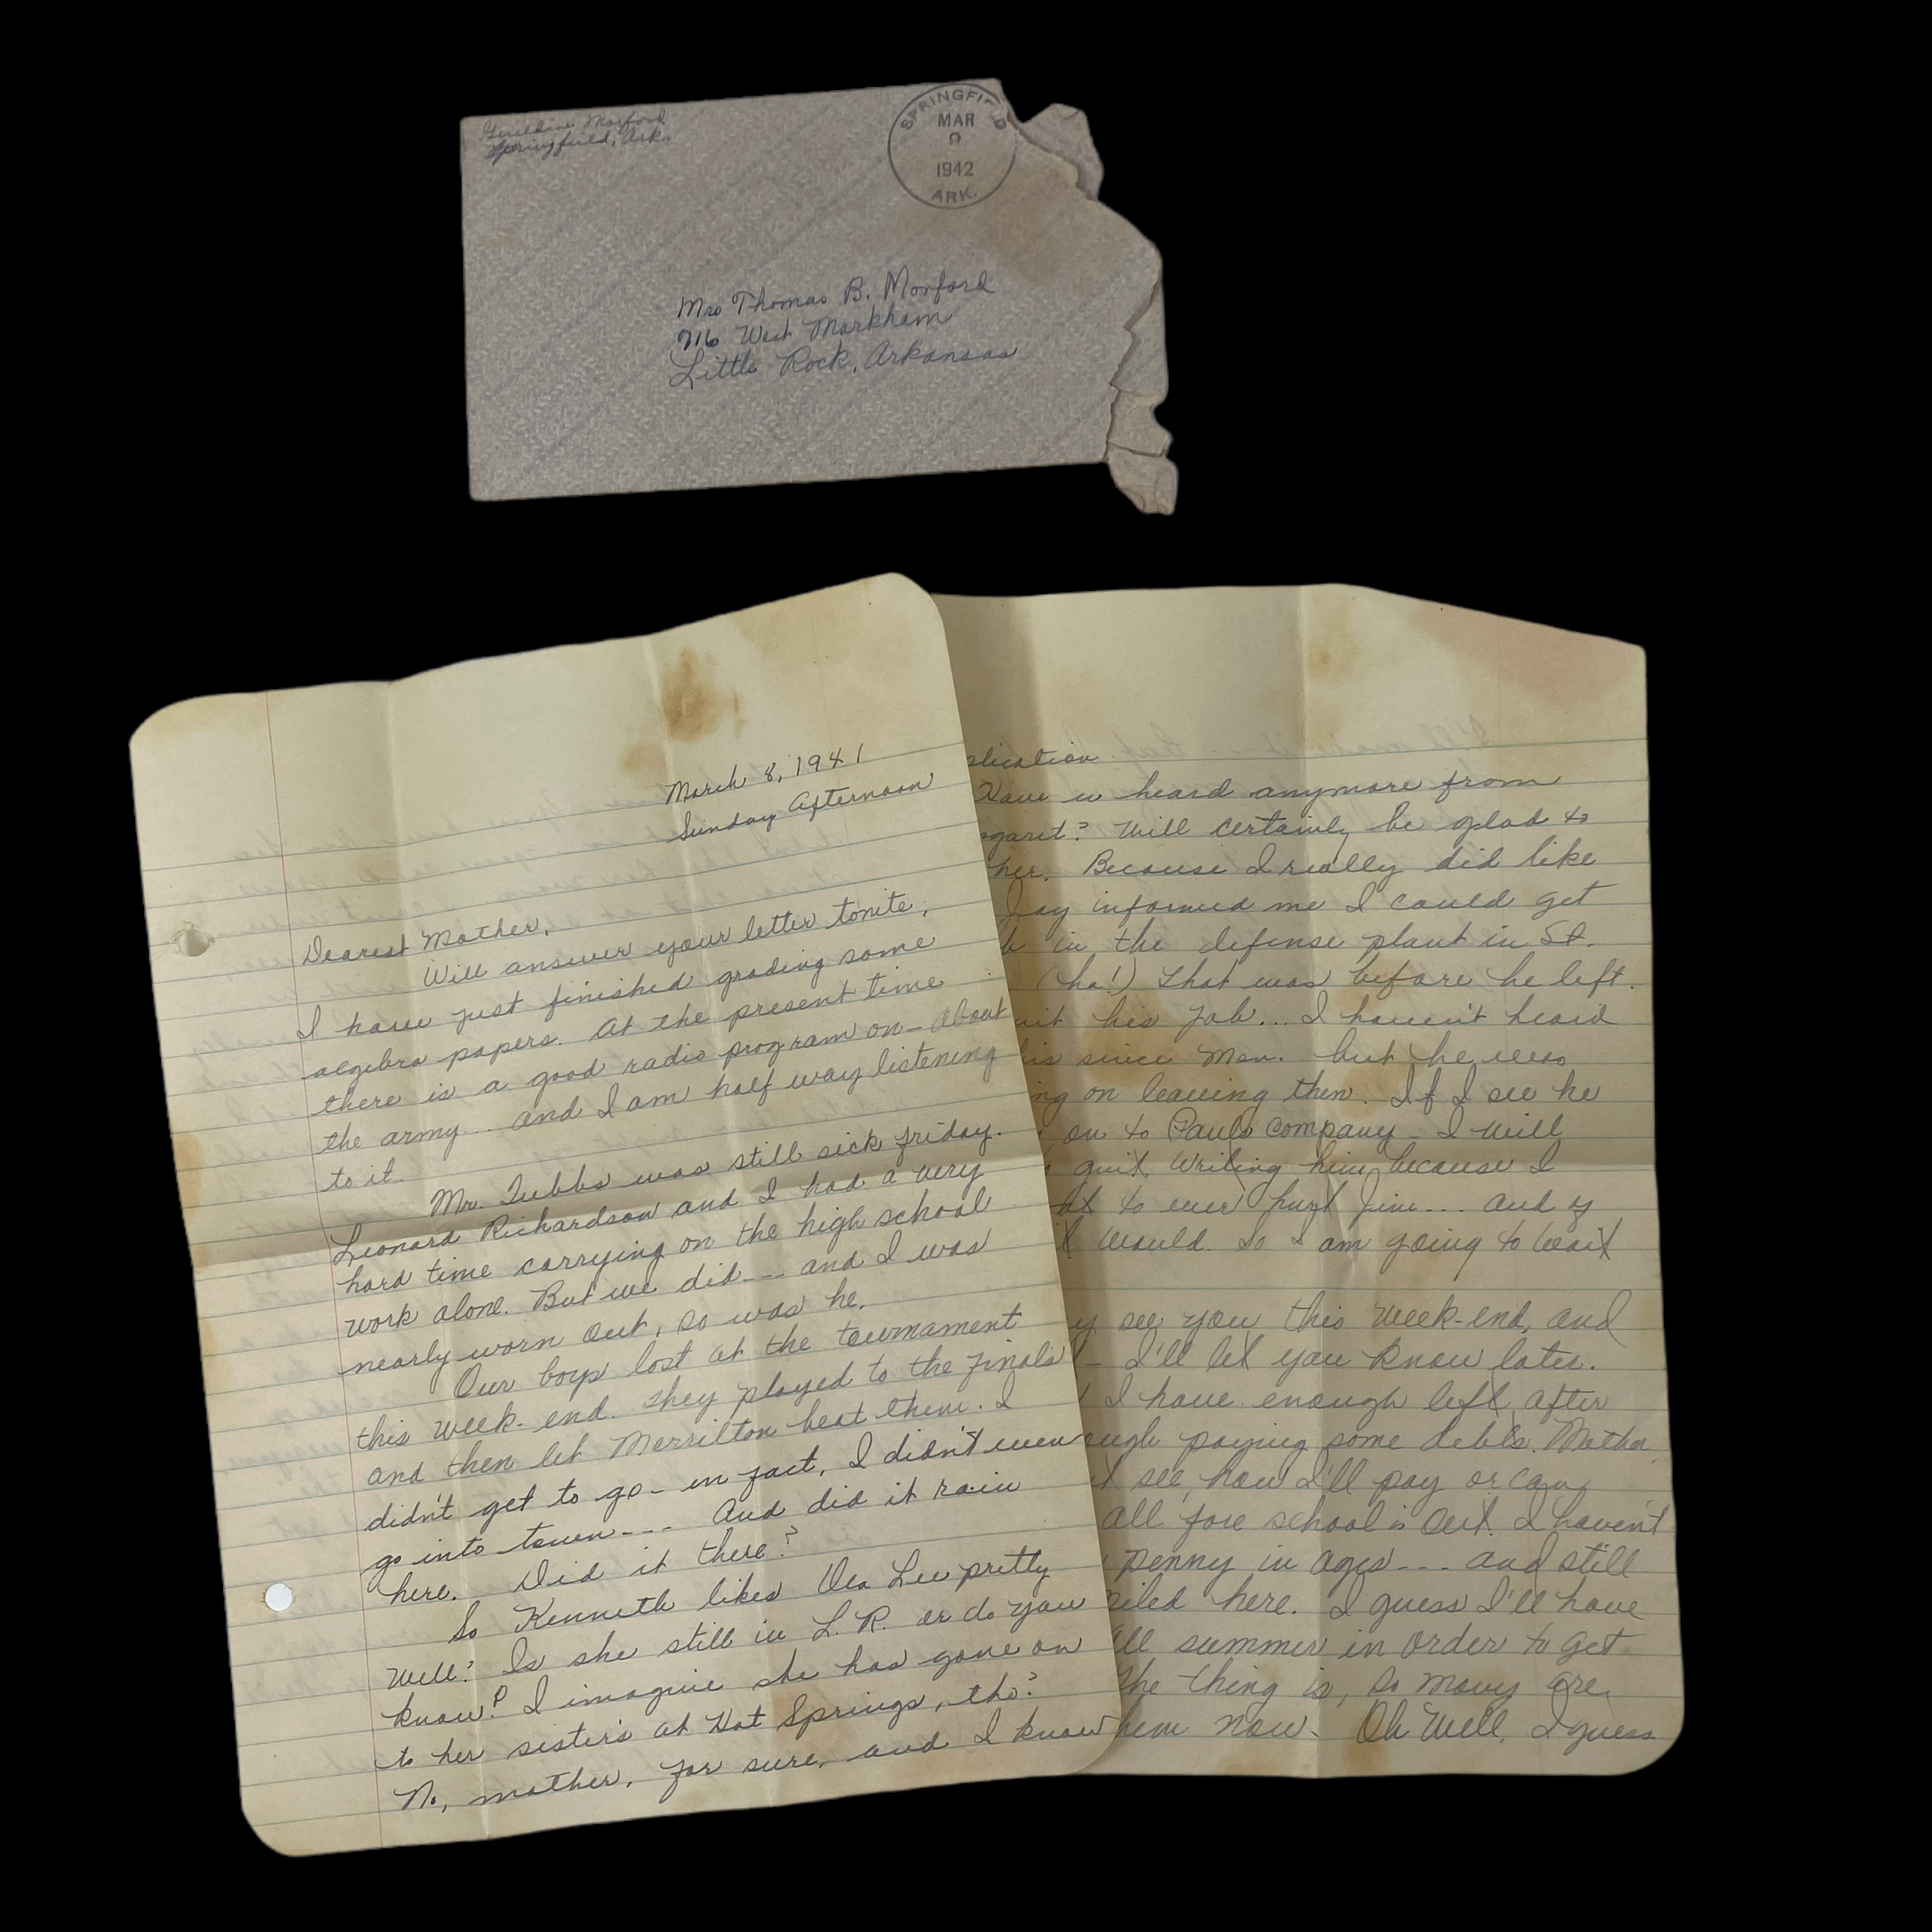 Geraldine Morford
Springfield, Ark.
SPRINGFIELD
MAR
9
1942
ARK.
Mrs Thomas B. Morford
716 West Markham
Little Rock, Arkansas
March 8, 1941
Sunday Afternoon
Dearest Mother,
Will answer your letter tonite,
I have just finished grading some
algebra papers. At the present time
there is a good radio program on - About
the army... and I am half way listening
to it.
Mr. Tubbs was still sick Friday.
Leonard Richardson and I had a very
hard time carrying on the high school
work alone. But we did --- and I was
nearly worn out, so was he.
Our boys lost at the tournament
this week-end. They played to the finals
and then let Morrilton beat them. I
didn't get to go - in fact, I didn't even
go into town --- And did it rain
here. Did it there?
So Kenneth likes Lee pretty
well? Is she still in L. R. or do you
know? I imagine she has gone on
to her sister's at Hot Springs, tho?
No, mother, for sure, and I know
plication
Have u heard anymore from
garet? Will certainly be glad to
her. Because I really did like
Jay informed me I could get
b in the defense plant in St.
(ha!) That was before he left.
uit his job... I haven't heard
his since Mon. but he was
ng on leaving then. If I see he
on to Pauls company - I will
quit writing him because I
to ever hurt Jim... and if
it would. So I am going to wait
y see you this week-end, and
- I'll let you know later.
I have enough left after
ough paying some debts. Mother
t see how I'll pay or can
all fore school is out. I haven't
penny in ages --- and still
here. I guess I'll have
all summer in order to get
The thing is, so many are
hem now. Oh Well, I guess